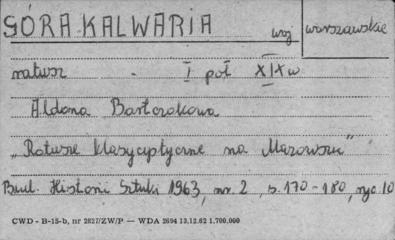 GÓRA KALWARIA woj warszawskie
ratusz - I poł XIX w
Aldona Bartczakowa
„Ratusze klasycystyczne na Mazowszu"
Biul. Historii Sztuki 1963, nr. 2, s. 170-180, ryc. 10
CWD - B-15-b, nr 2827/ZW/P — WDA 2694 13.12.62 1.700.000